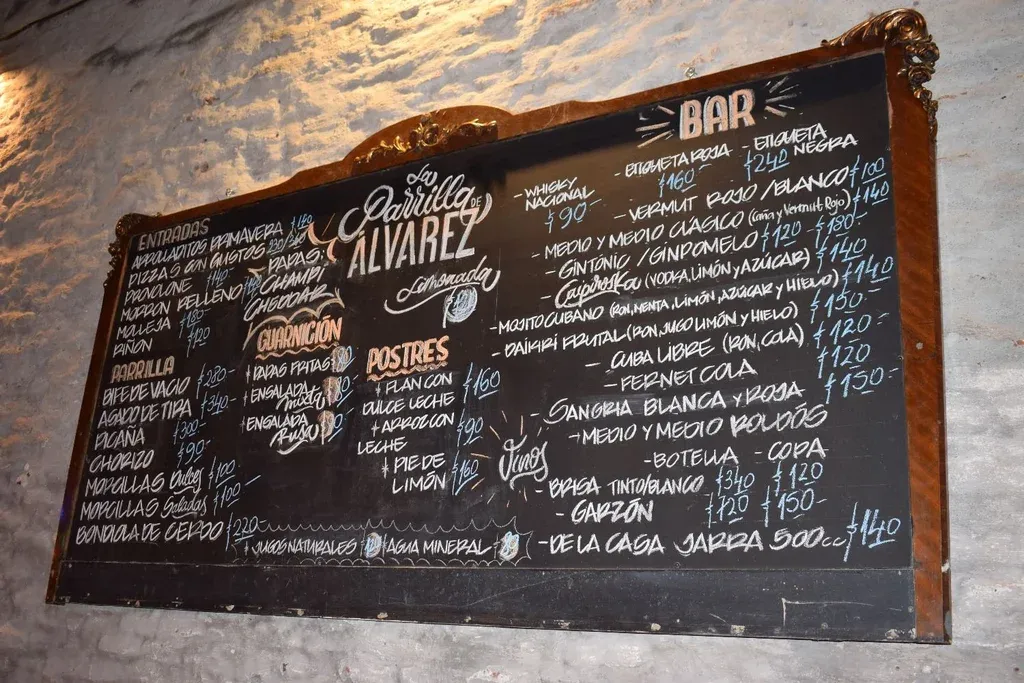 ENTRADAS
ARROLLADITOS PRIMAVERA $140
PIZZAS CON GUSTOS 230/260
PROVOLONE 140-
MORRON RELLENO
MOLLEJA 180-
RIÑON $120
PAPAS
CHAMPI
CHEDDAR
PARRILLA
BIFE DE VACIO $280-
ASADO DE TIRA $340-
PICAÑA $300-
CHORIZO $90-
MORCILLAS Dulces $100
MORCILLAS Saladas $100-
BONDIOLA DE CERDO $220-
GUARNICIÓN
+ PAPAS FRITAS
+ ENSALADA
Mixta
+ ENSALADA
Rusa
La
Parrilla
DE
ÁLVAREZ
Limonada
POSTRES
+ FLAN CON
DULCE LECHE $160
+ ARROZ CON
LECHE $90
+ PIE DE
LIMÓN $160
+ JUGOS NATURALES + AGUA MINERAL
BAR
- WHISKY
NACIONAL
$90-
- ETIQUETA ROJA
$160
- ETIQUETA
NEGRA
$240
- VERMUT ROJO/BLANCO $100
- MEDIO Y MEDIO CLÁSICO (Caña y Vermut Rojo) $140
- GINTONIC/GINPOMELO $120 - $180-
- Caipiroska (VODKA, LIMÓN y AZÚCAR) $140
- MOJITO CUBANO (RON, MENTA, LIMÓN, AZÚCAR y HIELO) $140
- DAIKIRI FRUTAL (RON, JUGO LIMÓN y HIELO) $150-
- CUBA LIBRE (RON, COLA) $120-
- FERNET COLA $120
- SANGRIA BLANCA y ROJA $150-
- MEDIO Y MEDIO ROLDÓS
Vinos
- BOTELLA - COPA
- BRISA TINTO/BLANCO $340 $120
- GARZÓN $720 $150-
- DE LA CASA JARRA 500cc $140